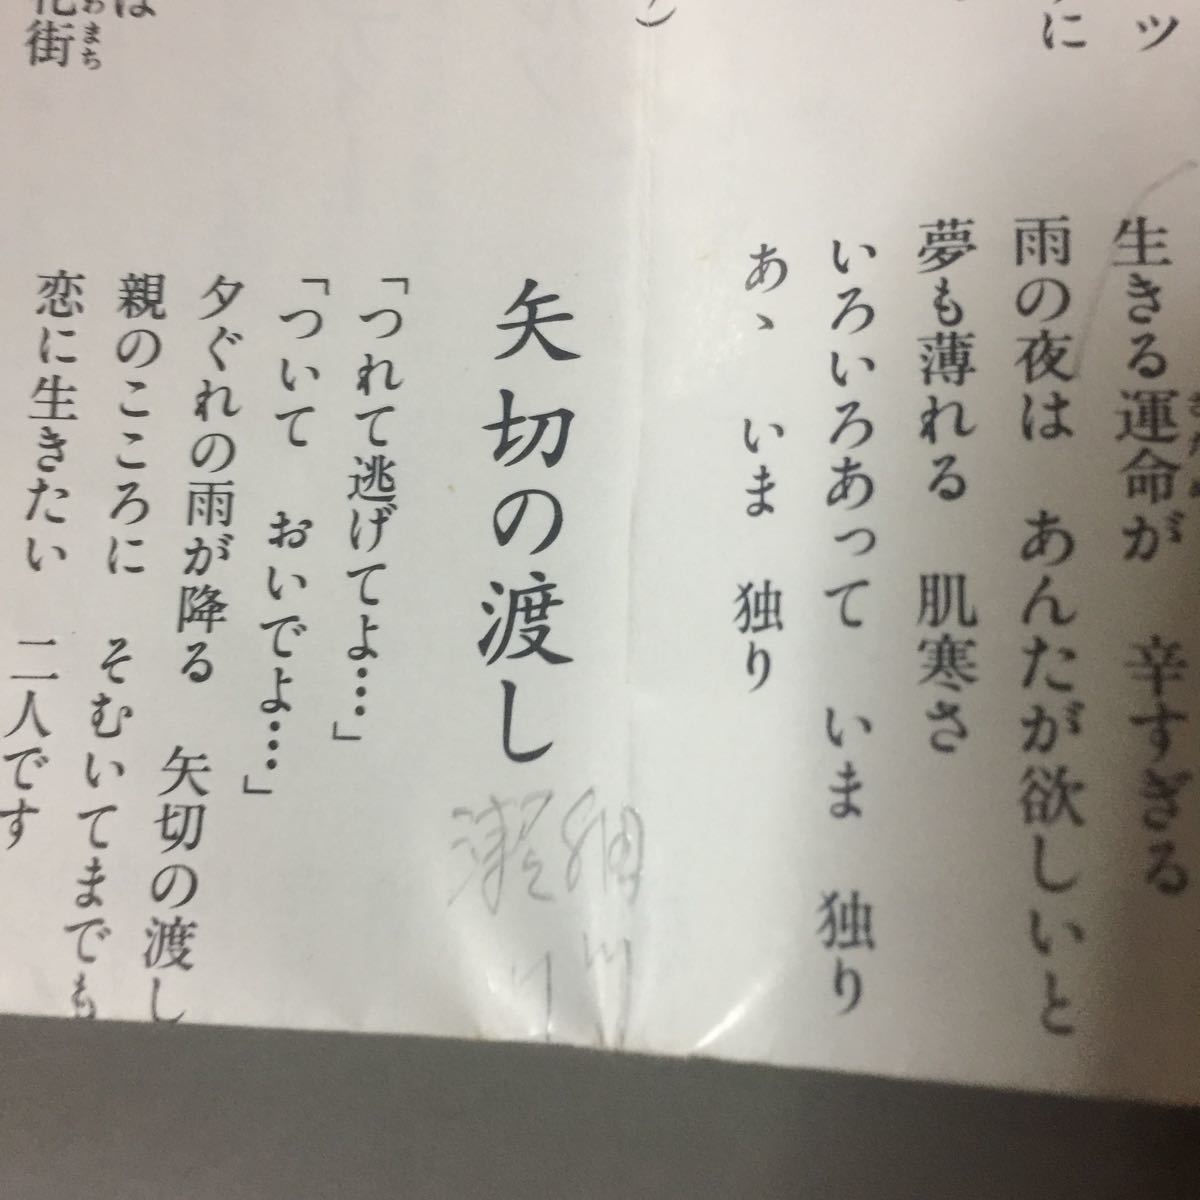 ッ
に
生きる運命が　辛すぎる
雨の夜は　あんたが欲しいと
夢も薄れる　肌寒さ
いろいろあって　いま　独り
あゝ　いま　独り
矢切の渡し
「つれて逃げてよ…」
「ついて　おいでよ…」
夕ぐれの雨が降る　矢切の渡し
親のこころに　そむいてまでも
恋に生きたい　二人です
は
街
まち